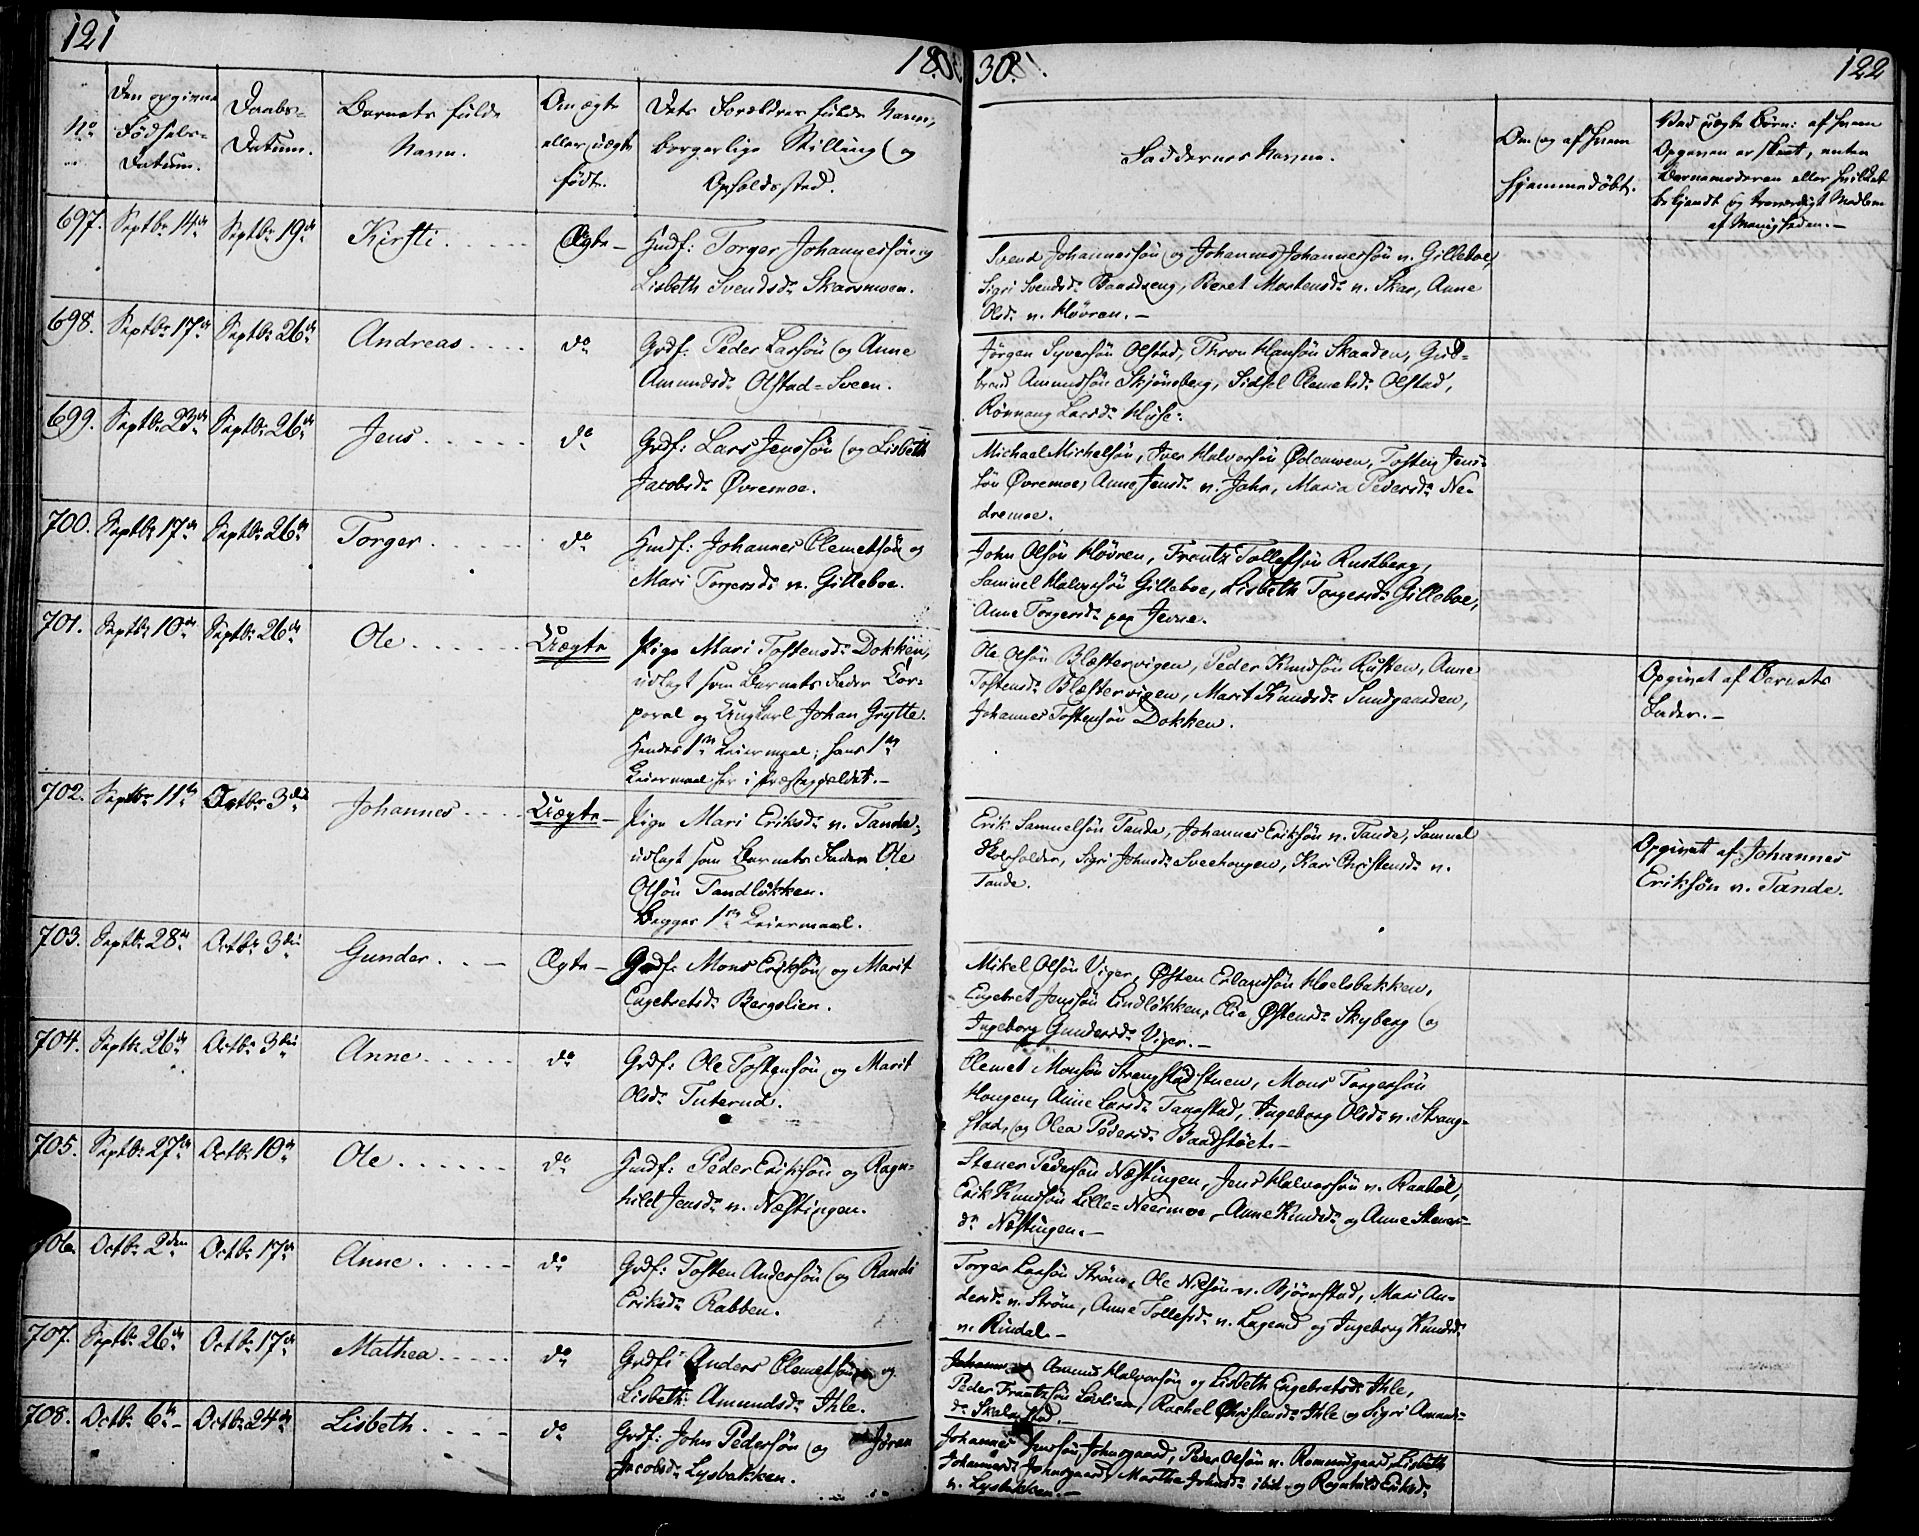 121
18
30.
122
No
Den opgivne Fødsels-Datum.
Daabs-Datum.
Barnets fulde Navn.
Om ægte eller uægte født.
Dets Forældres fulde Navn, borgerlige Stilling og Opholdssted.
Faddernes Navne.
Om og af hvem hjemmedøbt.
Ved uægte Børn: af hvem Opgaven er skeet, enten Barnemoderen eller hvilket bekjendt og troværdigt Medlem af Menigheden.–
697. Septbr 14de Septbr 19de Kirsti..... Ægte – Gmdf: Torger Johannessøn og
Lisbeth Svendsdr Skarsmoen.
Svend Johannessøn og Johannes Johannessøn n. Gilleboe,
Sigri Svendsdr Baardseng, Beret Mortensdr n. Skar, Anne
Olsdr n. Høvren.–
698. Septbr 17de Septbr 26de Andreas.... do Grdf: Peder Larsøn og Anne
Amundsdr Olstad-Sveen.
Jørgen Syversøn Olstad, Thron Hansøn Skaaden, Gud-
brand Amundsøn Skjønsberg, Sidsel Clemetsdr Olstad,
Rønnaug Larsdr Huse.
699. Septbr 23de Septbr 26de Jens..... do Grdf: Lars Jenssøn og Lisbeth
Jacobsdr Øvremoe.
Michael Mikelsøn, Iver Halvorsøn Ødemoen, Tosten Jens-
søn Øvremoe, Anne Jensdr n. Jahr, Maria Pedersdr Ne-
dremoe.
700. Septbr 17de Septbr 26de Torger..... do Gmdf: Johannes Clemetsøn og
Mari Torgersdr n. Gilleboe.
John Olsøn Høvren, Frentz Tollefsøn Rustberg,
Samuel Halvorsøn Gilleboe, Lisbeth Torgersdr Gilleboe,
Anne Torgersdr paa Jevne.
701. Septbr 10de Septbr 26de Ole...... Uægte Pige Mari Tostensdr Dokken,
udlagt som Barnets Fader Cor-
poral og Ungkarl Johan Grytte.
Hendes 1ste Leiermaal; hans 1ste
Leiermaal her i Præstegjeldet.–
Ole Olsøn Blæstervigen, Peder Knudsøn Rusten, Anne
Tostensdr Blæstervigen, Marit Knudsdr Sundgaarden,
Johannes Tostensøn Dokken.
Opgivet af Barnets
Fader.–
702. Septbr 11te Octbr 3die Johannes.... Uægte – Pige Mari Eriksdr n. Tande,
udlagt som Barnets Fader Ole
Olsøn Tandløkken.
Begges 1ste Leiermaal.
Erik Samuelsøn Tande, Johannes Eriksøn n. Tande, Samuel
Skoleholder, Sigri Johnsdr Sveehougen, Kari Christensdr n.
Tande.
Opgivet af Johannes
Eriksøn n. Tande.
703. Septbr 28de Octbr 3die Gunder..– Ægte – Grdf: Mons Eriksøn og Marit
Engebretsdr Bergslien.
Mikel Olsøn Viger, Østen Erlandsøn Hoelsbakken,
Engebret Jenssøn Lindløkken, Elie Østensdr Skyberg og
Ingeborg Gundersdr Viger.–
704. Septbr 26de Octbr 3die Anne..... do Grdf: Ole Tostensøn og Marit
Olsdr Tuterud.
Clemet Monsøn Strangstadstuen, Mons Torgersøn
Hougen, Anne Larsdr Taarstad, Ingeborg Olsdr n. Strang-
stad, og Olea Pedersdr Baadstøet.–
705. Septbr 27de Octbr 10de Ole...... do Gmdf: Peder Eriksøn og Ragn-
hild Jensdr n. Næstingen.
Stener Pedersøn Næstingen, Jens Halvorsøn n. Raabøl,
Erik Knudsøn Lille-Neermoe, Anne Knudsdr og Anne Steners-
dr Næstingen.–
706. Octbr 2den Octbr 17de Anne..... do Grdf: Tosten Andersøn og Randi
Eriksdr Rabben.
Torger Larsøn Strøm, Ole Nilsøn n. Bjørnstad, Mari An-
dersdr n. Strøm, Anne Tollefsdr n. Lageard og Ingeborg Knudsdr
n. Rindal.–
707. Septbr 26de Octbr 17de Mathea..... do Grdf: Anders Clemetsøn og
Lisbeth Amundsdr Ihle.
Amund Halvorsøn og Lisbeth Engebretsdr Ihle,
Peder Frantzsøn Lovlien, Rachel Christensdr Ihle og Sigri Amunds-
dr Skalmstad.–
708. Octbr 6te – Octbr 24de Lisbeth..... do Grdf: John Pedersøn og Jøran
Jacobsdr Lysbakken.
Johannes Jenssøn Johnsgaard, Peder Olsøn n. Romundgaard, Lisbeth
Johannesdr Johnsgaard, Marthe Johnsdr ibid. og Ragnhild Eriksdr
n. Lysbakken.–